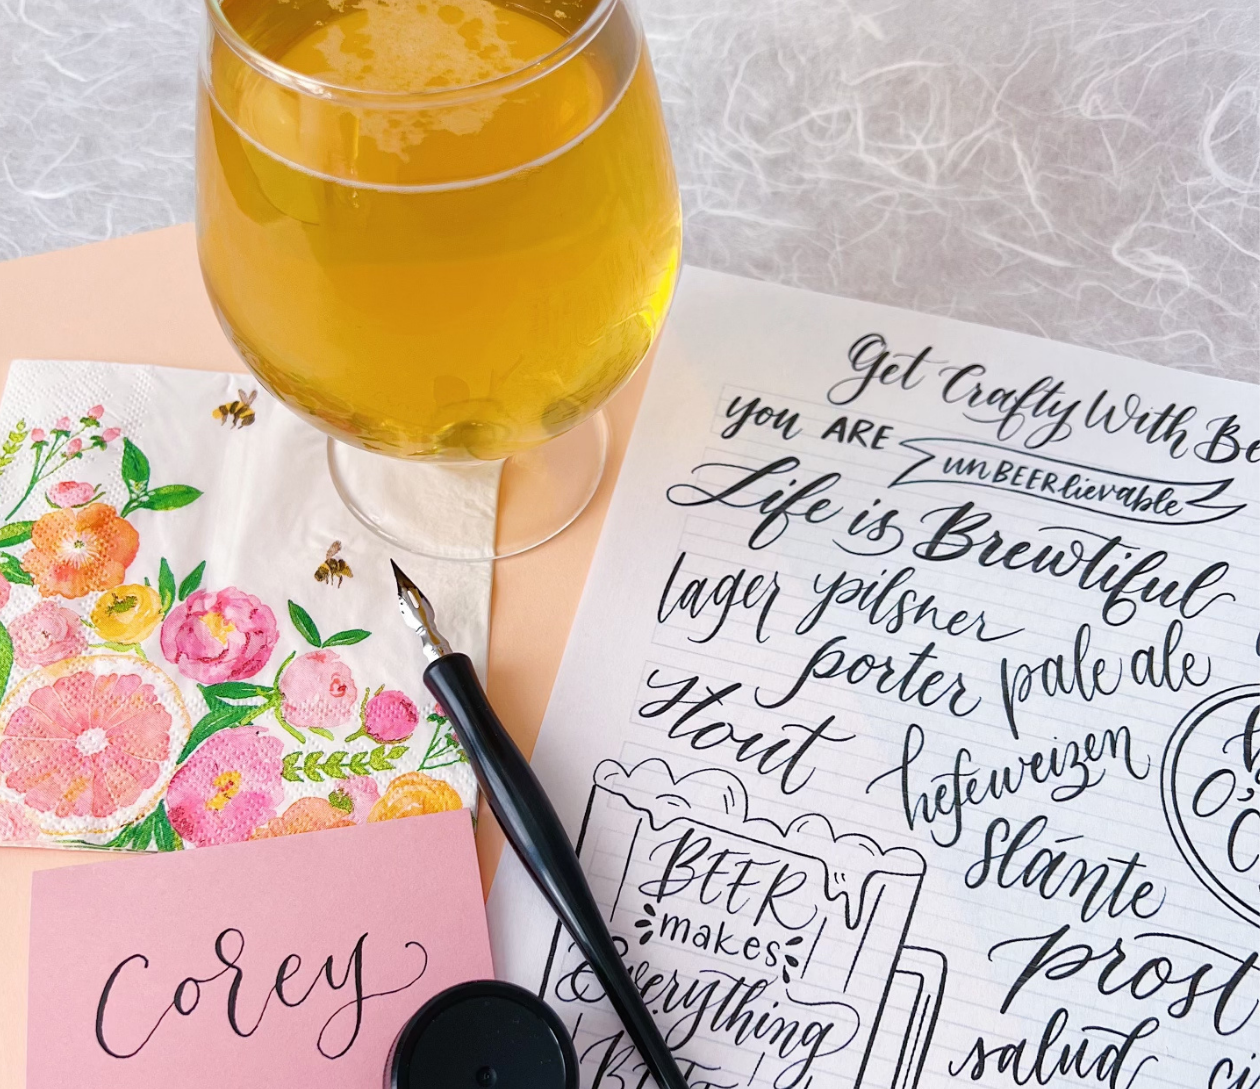 Get Crafty With
you ARE unBEERlievable
Life is Brewtiful
lager pilsner
porter pale ale
stout
hefeweizen
BEER
makes
Everything
Slánte
prost
salud
Corey